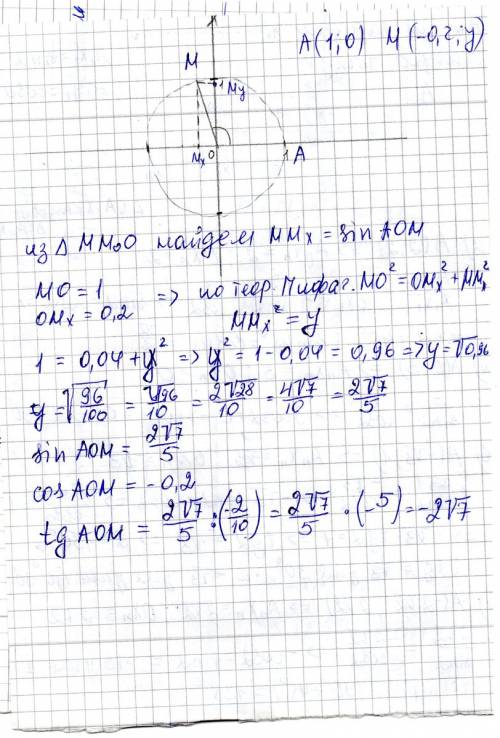 A(1;0) M(-0,2;y)
M
1 My
Mx 0 1 A
из Δ MMxO найдем MMx = sin AOM
MO = 1
OMx = 0,2
=> по теор. Пифаг. MO² = OMx² + MMx²
MMx² = y
1 = 0,04 + y² => y² = 1 - 0,04 = 0,96 => y = √0,96
y = √(96/100) = √96/10 = 2√28/10 = 4√7/10 = 2√7/5
sin AOM = 2√7/5
cos AOM = -0,2
tg AOM = 2√7/5 : (-2/10) = 2√7/5 · (-5) = -2√7